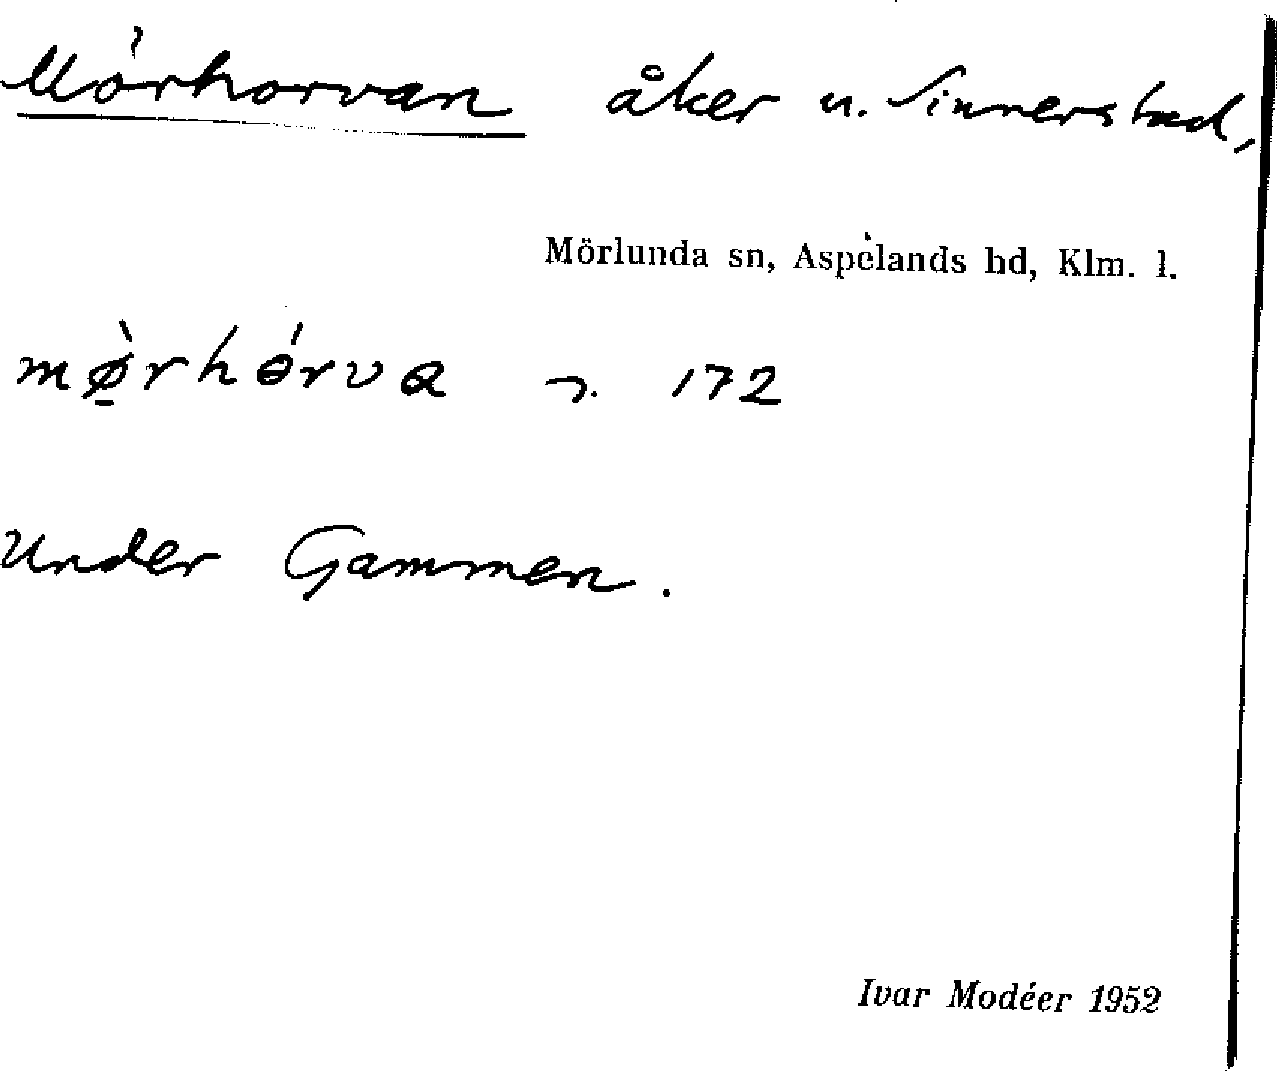 Mörhorvan åker u. Sinnerstad,
Mörlunda sn, Aspelands hd, Klm. l.
mø̠̀rhórva 172
Under Gammen.
Ivar Modéer 1952